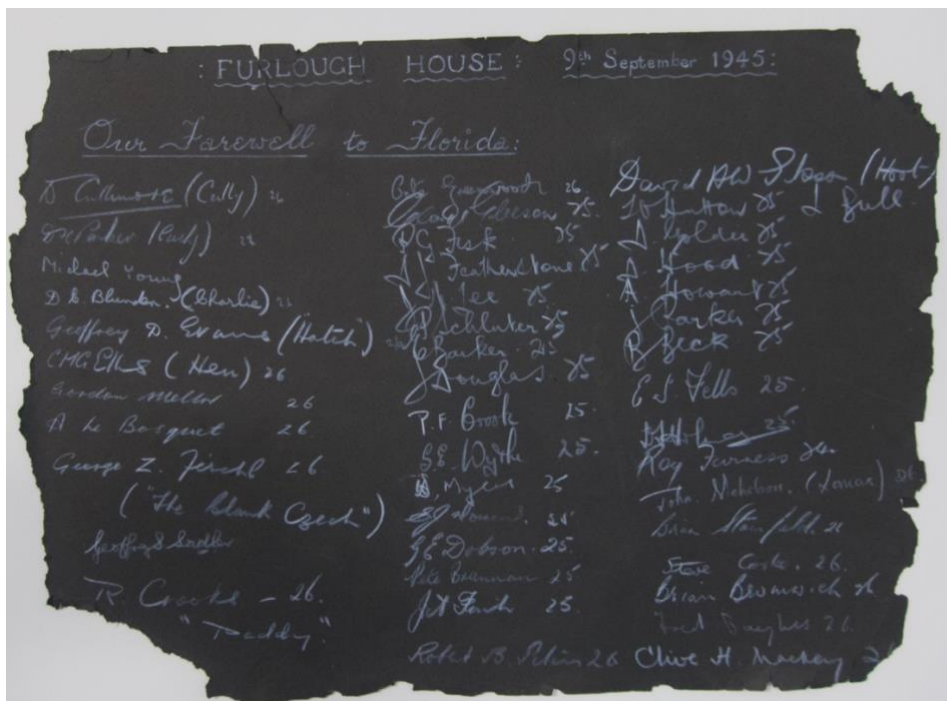 : FURLOUGH HOUSE : 9th September 1945:
Our Farewell to Florida:
D Cullimore (Cully) 26
D Parker (Curly)
Michael Young
D. C. Blunden. (Charlie)
Geoffrey D. Evans ("Hatch")
(Hen) 26
Gordon Mellor 26
A Le Bosquet 26
George Z. 26
("The blank Czech")
Geoffrey S
R. Crooks – 26.
"Paddy".
Greenwood 26
Gleeson 25.
Fisk 25
Featherstone 25
Lee 25.
Schluter 25
Barker. 25
J Douglas 25
P. F. Brook 25.
G.E. Wythe 25.
Myers 25
G.E. Dobson. 25.
Pete Brannan 25
25.
Robert B. 26
David AW (Hoot)
Hutton 25 2 full
Golder 25
A Hood 25
A Howard 25
J Parker 25
R Beck 25
E S Fells 25.
25.
Roy Furness 24.
John Nicholson. (Lomax) 26
Brian 26
Steve Cooke. 26.
Brian Bromwich 26
Fred Hughes 26
Clive H. Mackey 26